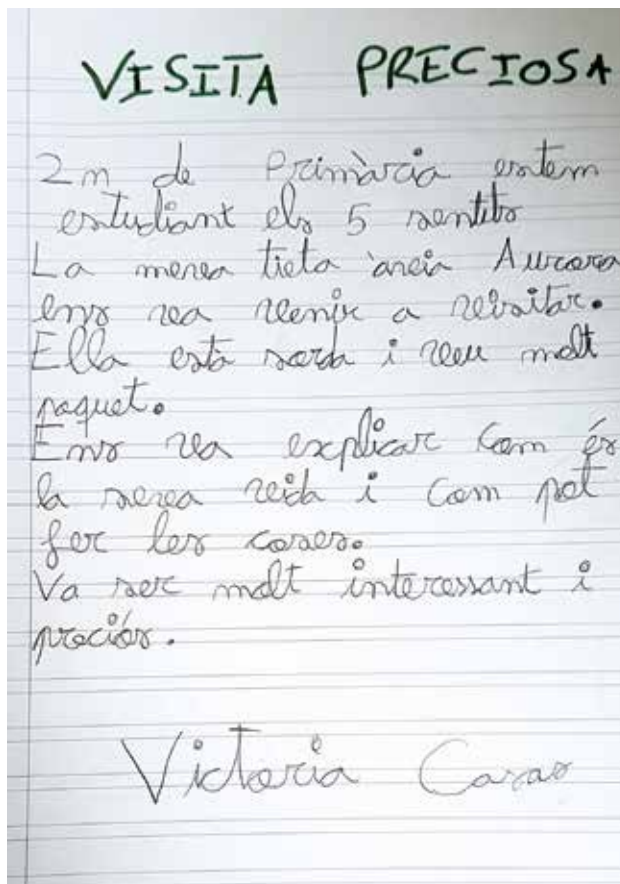 VISITA PRECIOSA
2n de Primària estem
estudiant els 5 sentits
La meva tieta àvia Aurora
ens va venir a visitar.
Ella està sorda i veu molt
poquet.
Ens va explicar com és
la seva vida i com pot
fer les coses.
Va ser molt interessant i
preciós.
Victoria Casas